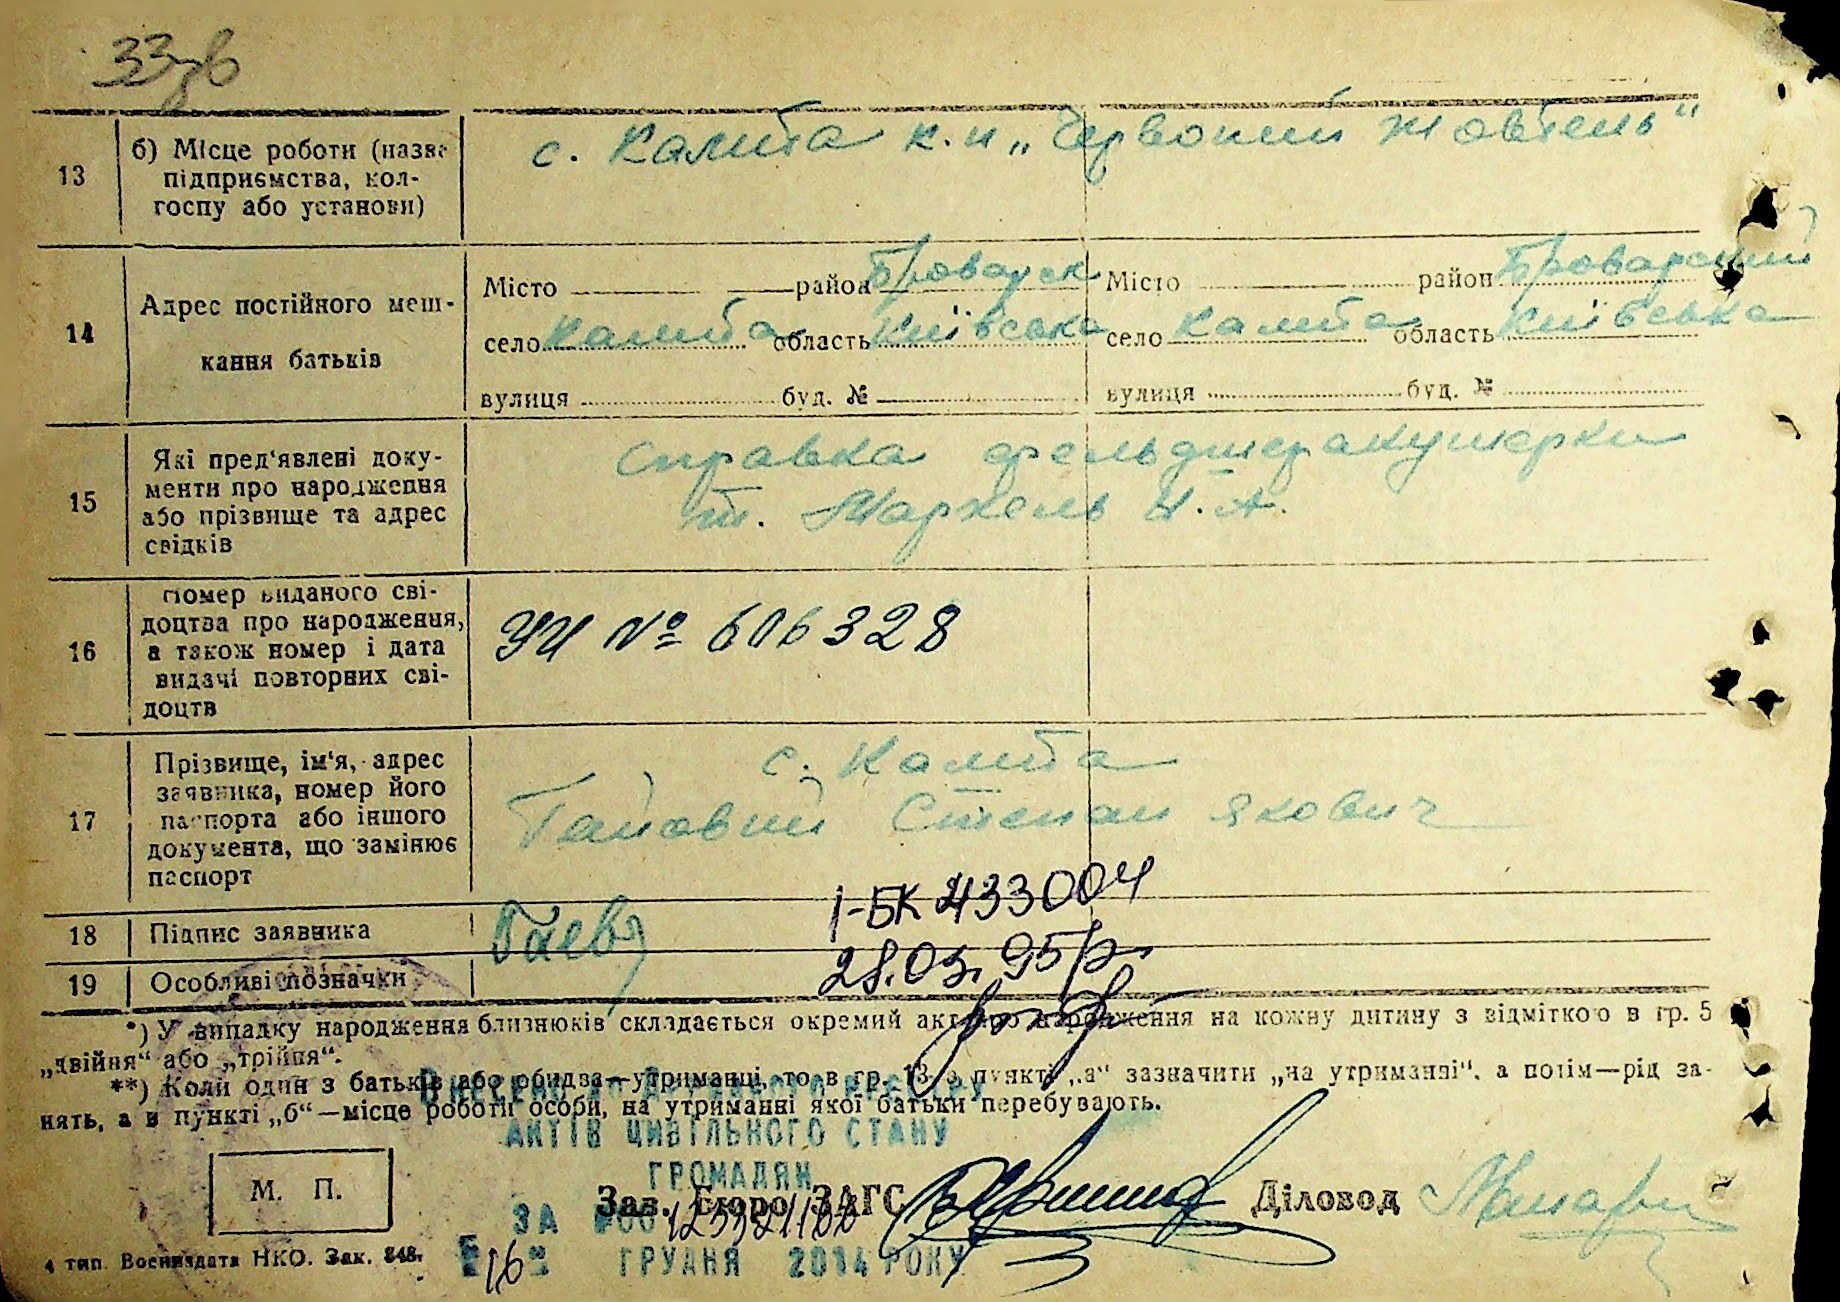 33зв
13
б) Місце роботи (назва
підприємства, кол-
госпу або установи)
с. Калита к.и „Червоний Жовтень"
14
Адрес постійного меш-
кання батьків
Місто район Броварск Місто район Броварский
село Калита область Київська село Калита область Київська
вулиця буд. № вулиця буд. №
15
Які пред'явлені доку-
менти про народження
або прізвище та адрес
свідків
справка фельдшеракушерки
т. Маркель Н.А.
16
Номер виданого сві-
доцтва про народження,
а також номер і дата
видачі повторних сві-
доцтв
УИ № 606328
17
Прізвище, ім'я, адрес
заявника, номер його
паспорта або іншого
документа, що замінює
паспорт
с. Калита
Гайовий Степан Якович
18
Підпис заявника
Гаев
I-БК 433004
19
Особливі позначки
28.03.95р.
*) У випадку народження близнюків складається окремий акт про народження на кожну дитину з відміткою в гр. 5
„двійня" або „трійня".
**) Коли один з батьків або обидва—утриманці, то в гр. 13 в пункті „а" зазначити „на утриманні", а потім—рід за-
нять, а в пункті „б"—місце роботи особи, на утриманні якої батьки перебувають.
Внесено до Державного реєстру
актів цивільного стану
громадян
М. П.
Зав. Бюро ЗАГС
Діловод
за №00
16 грудня 2014 року
4 тип. Воениздата НКО. Зак. 848.